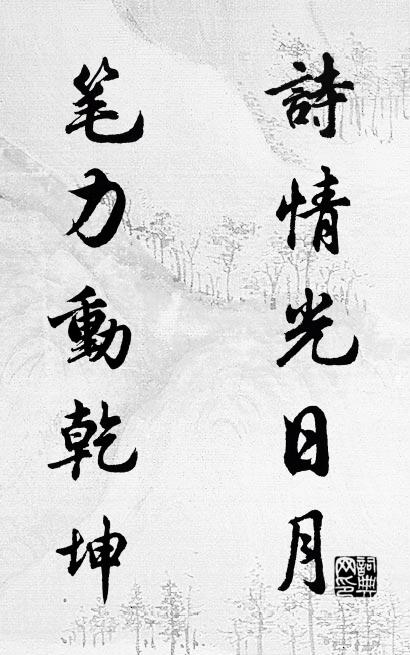 詩情光日月
笔力動乾坤
詞典网印